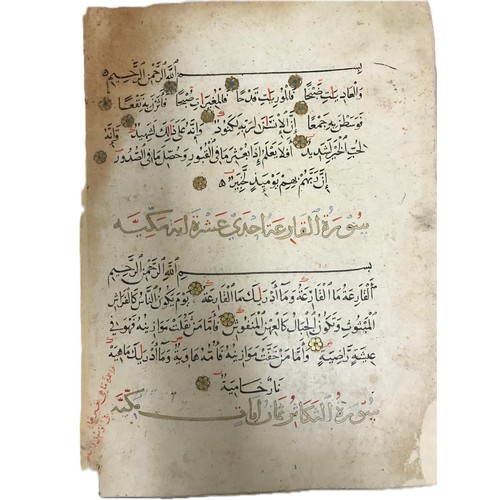 بسم الله الرحمن الرحيم
والعاديات ضبحا فالموريات قدحا فالمغيرات صبحا فأثرن به نقعا
فوسطن به جمعا إن الإنسان لربه لكنود وإنه على ذلك لشهيد وإنه
لحب الخير لشديد أفلا يعلم إذا بعثر ما في القبور وحصل ما في الصدور
إن ربهم بهم يومئذ لخبير
سورة القارعة احدى عشرة اية مكية
بسم الله الرحمن الرحيم
القارعة ما القارعة وما أدريك ما القارعة يوم يكون الناس كالفراش
المبثوث وتكون الجبال كالعهن المنفوش فأما من ثقلت موازينه فهو في
عيشة راضية وأما من خفت موازينه فأمه هاوية وما أدريك ماهية
نار حامية
سورة التكاثر ثمان ايات مكية